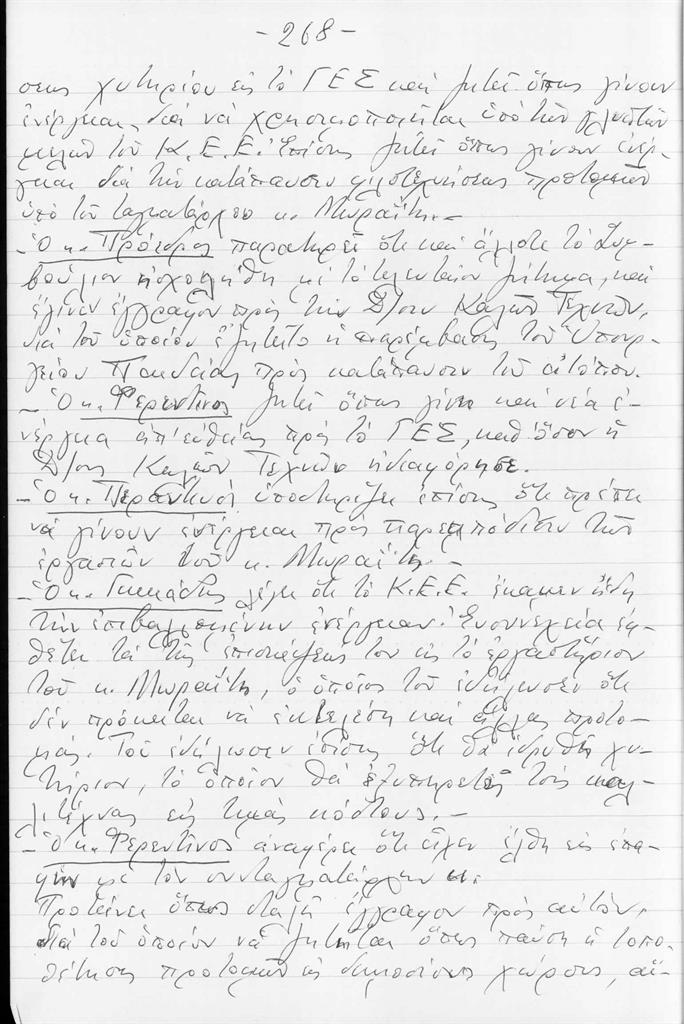 - 268 -
σεως χυτηρίου εἰς τό ΓΕΣ καί ζητεῖ ὅπως γίνουν
ἐνέργειαι, διά νά χρησιμοποιῆται ὑπό τῶν γλυπτῶν
μελῶν τοῦ Κ.Ε.Ε. Ἐπίσης ζητεῖ ὅπως γίνουν ἐνέρ-
γειαι διά τήν κατάπαυσιν φιλοτεχνήσεως προτομῶν
ὑπό τοῦ ταγματάρχου κ. Μωραΐτη.-
- Ὁ κ. Πρόεδρος παρατηρεῖ ὅτι καί ἄλλοτε τό Συμ-
βούλιον ἠσχολήθη μέ τό τελευταῖον ζήτημα, καί
ἔγινεν ἔγγραφον πρός τήν Δ/σιν Καλῶν Τεχνῶν,
διά τοῦ ὁποίου ἐζητεῖτο ἡ παρέμβασις τοῦ Ὑπουρ-
γείου Παιδείας πρός κατάπαυσιν τοῦ ἀτόπου.
- Ὁ κ. Φερεντῖνος ζητεῖ ὅπως γίνῃ καί νέα ἐ-
νέργεια ἀπ' εὐθείας πρός τό ΓΕΣ, καθ' ὅσον ἡ
Δ/σις Καλῶν Τεχνῶν ἠδιαφόρησε.
- Ὁ κ. Περαντινός ὑποστηρίζει ἐπίσης ὅτι πρέπει
νά γίνουν ἐνέργειαι πρός παρεμπόδισιν τῶν
ἐργασιῶν τοῦ κ. Μωραΐτη.-
- Ὁ κ. λέγει ὅτι τό Κ.Ε.Ε. ἔκαμεν ἤδη
τήν ἐπιβαλλομένην ἐνέργειαν. Ἐν συνεχείᾳ ἐκ-
θέτει τά τῆς ἐπισκέψεώς του εἰς τό ἐργαστήριον
τοῦ κ. Μωραΐτη, ὁ ὁποῖος τοῦ ἐδήλωσεν ὅτι
δέν πρόκειται νά ἐκτελέσῃ καί ἄλλας προτο-
μάς. Τοῦ ἐδήλωσεν ἐπίσης ὅτι θά ἱδρυθῇ χυ-
τήριον, τό ὁποῖον θά ἐξυπηρετεῖ τούς καλ-
λιτέχνας εἰς τιμάς κόστους.-
- Ὁ κ. Φερεντῖνος ἀναφέρει ὅτι εἶχεν ἔλθῃ εἰς ἐπα-
φήν μέ τόν συνταγματάρχην κ.
Προτείνει ὅπως σταλῇ ἔγγραφον πρός αὐτόν,
διά τοῦ ὁποίου νά ζητῆται ὅπως παύσῃ ἡ τοπο-
θέτησις προτομῶν εἰς δημοσίους χώρους, αἵ-